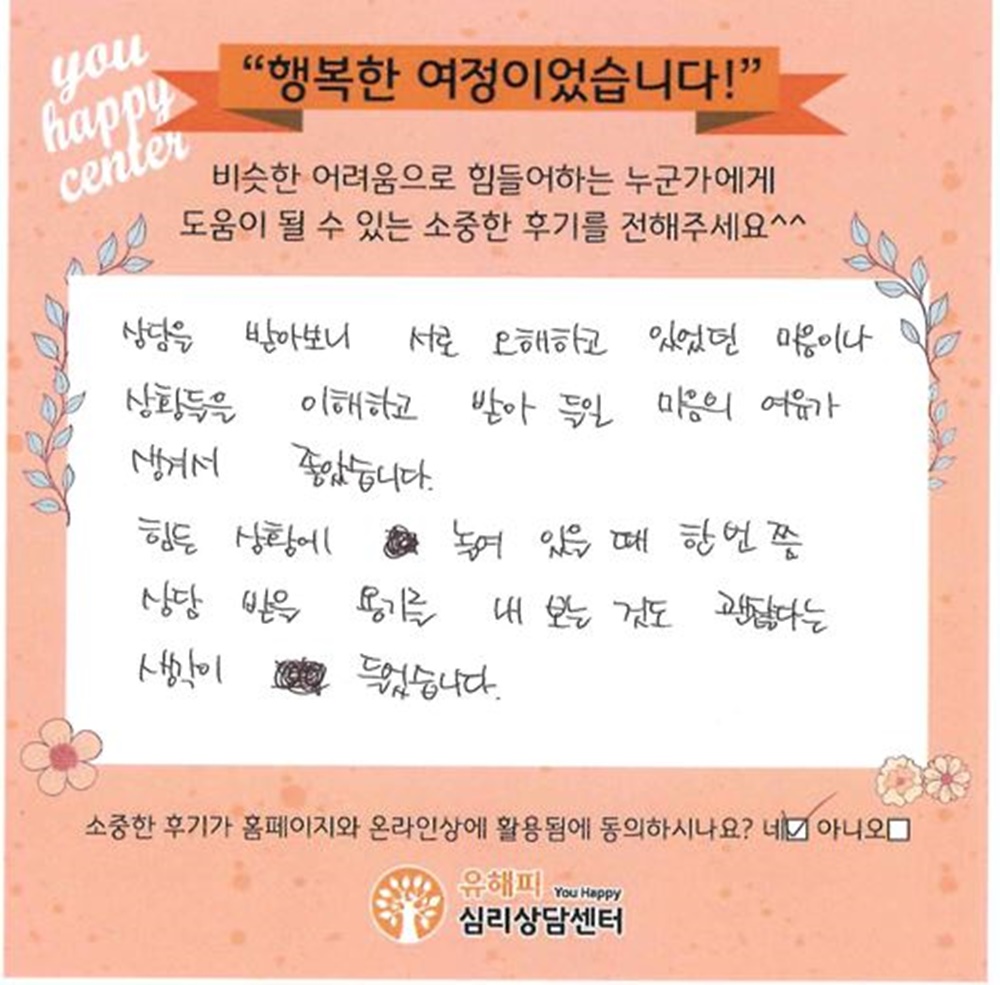 you
happy
center
“행복한 여정이었습니다!”
비슷한 어려움으로 힘들어하는 누군가에게
도움이 될 수 있는 소중한 후기를 전해주세요^^
상담을 받아보니 서로 오해하고 있었던 마음이나
상황들을 이해하고 받아 들일 마음의 여유가
생겨서 좋았습니다.
힘든 상황에 놓여 있을 때 한 번 쯤
상담 받을 용기를 내 보는 것도 괜찮다는
생각이 들었습니다.
소중한 후기가 홈페이지와 온라인상에 활용됨에 동의하시나요? 네☑ 아니오☐
유해피 You Happy
심리상담센터